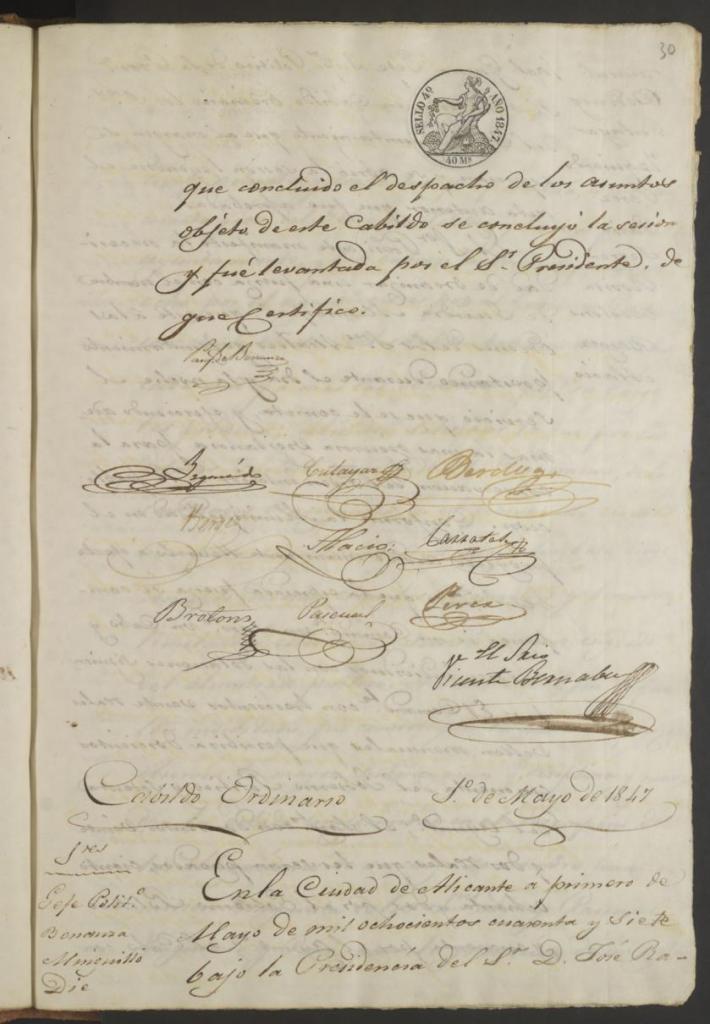 30
SELLO 4º AÑO 1847.
40 Ms
que concluido el despacho de los asuntos
objeto de este Cabildo se concluyó la sesion
y fué levantada por el Sr. Presidente, de
que Certifico.
Bonanza
Berdugo
Palacio
Carratalá
Brotons Pascual Perez
El Srio
Vicente Bernabeu
Cabildo Ordinario 1º de Mayo de 1847
Sres
Gefe Polit.º
Bonanza
Minguilló
Die
En la Ciudad de Alicante a primero de
Mayo de mil ochocientos cuarenta y siete
bajo la Presidencia del Sr. D. José Ra-